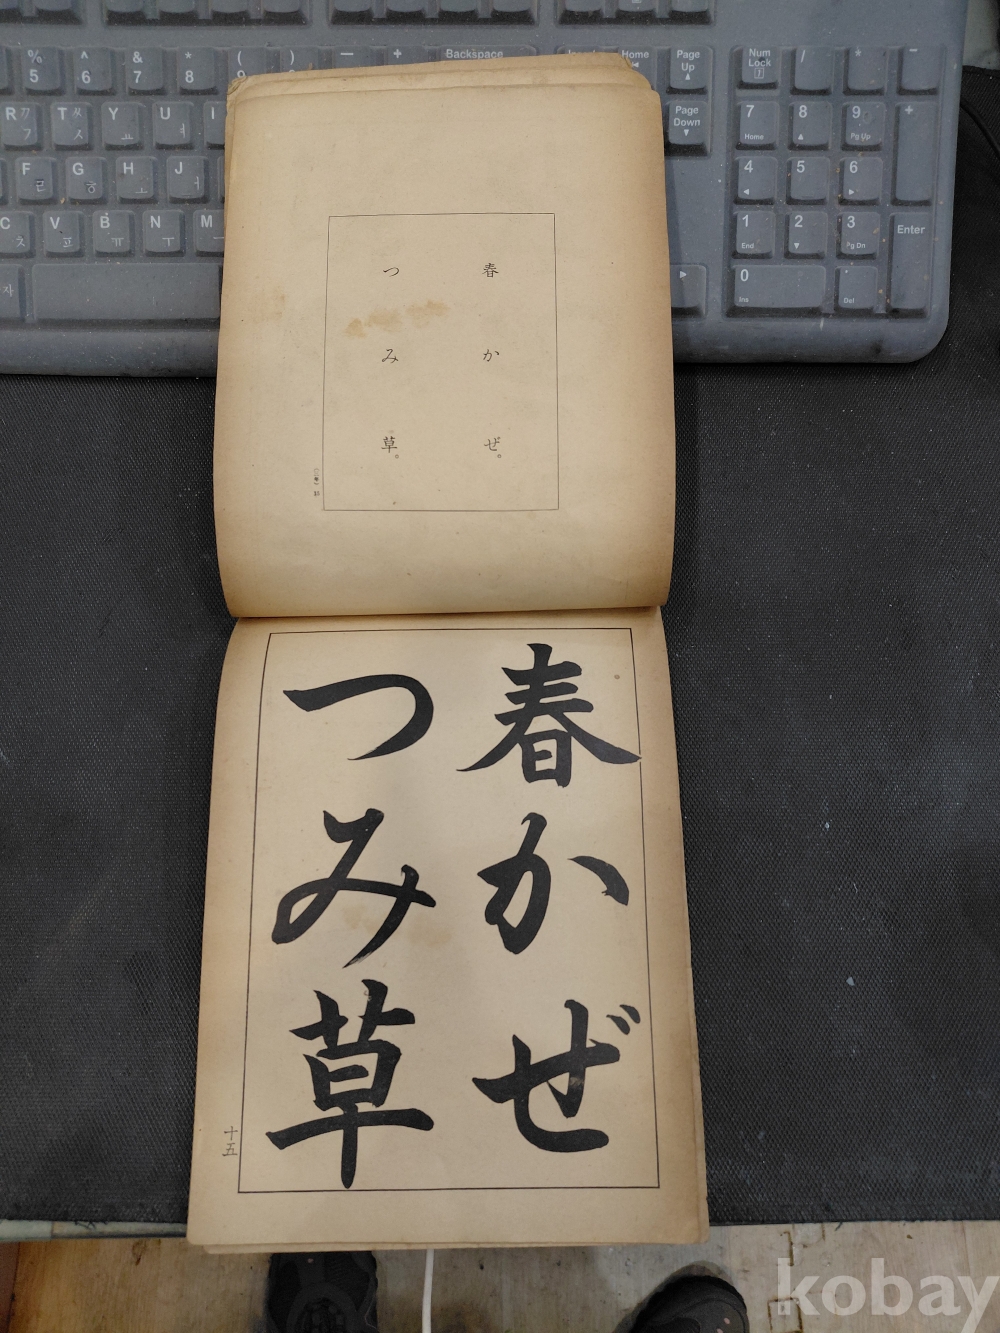 % ^ & * ( ) — + Backspace Home Page Up Num Lock / * −
5 6 7 8 9
R ㄲ ㄱ T ㅆ ㅅ Y ㅛ U ㅕ I Page Down 7 Home 8 9 Pg Up +
F ㄹ G ㅎ H ㅗ J ㅓ 4 5 6
C ㅊ V ㅍ B ㅠ N ㅜ M ㅡ 1 End 2 3 Pg Dn Enter
자 0 Ins . Del
春かぜ。
つみ草。
春かぜ
つみ草
十五
kobay